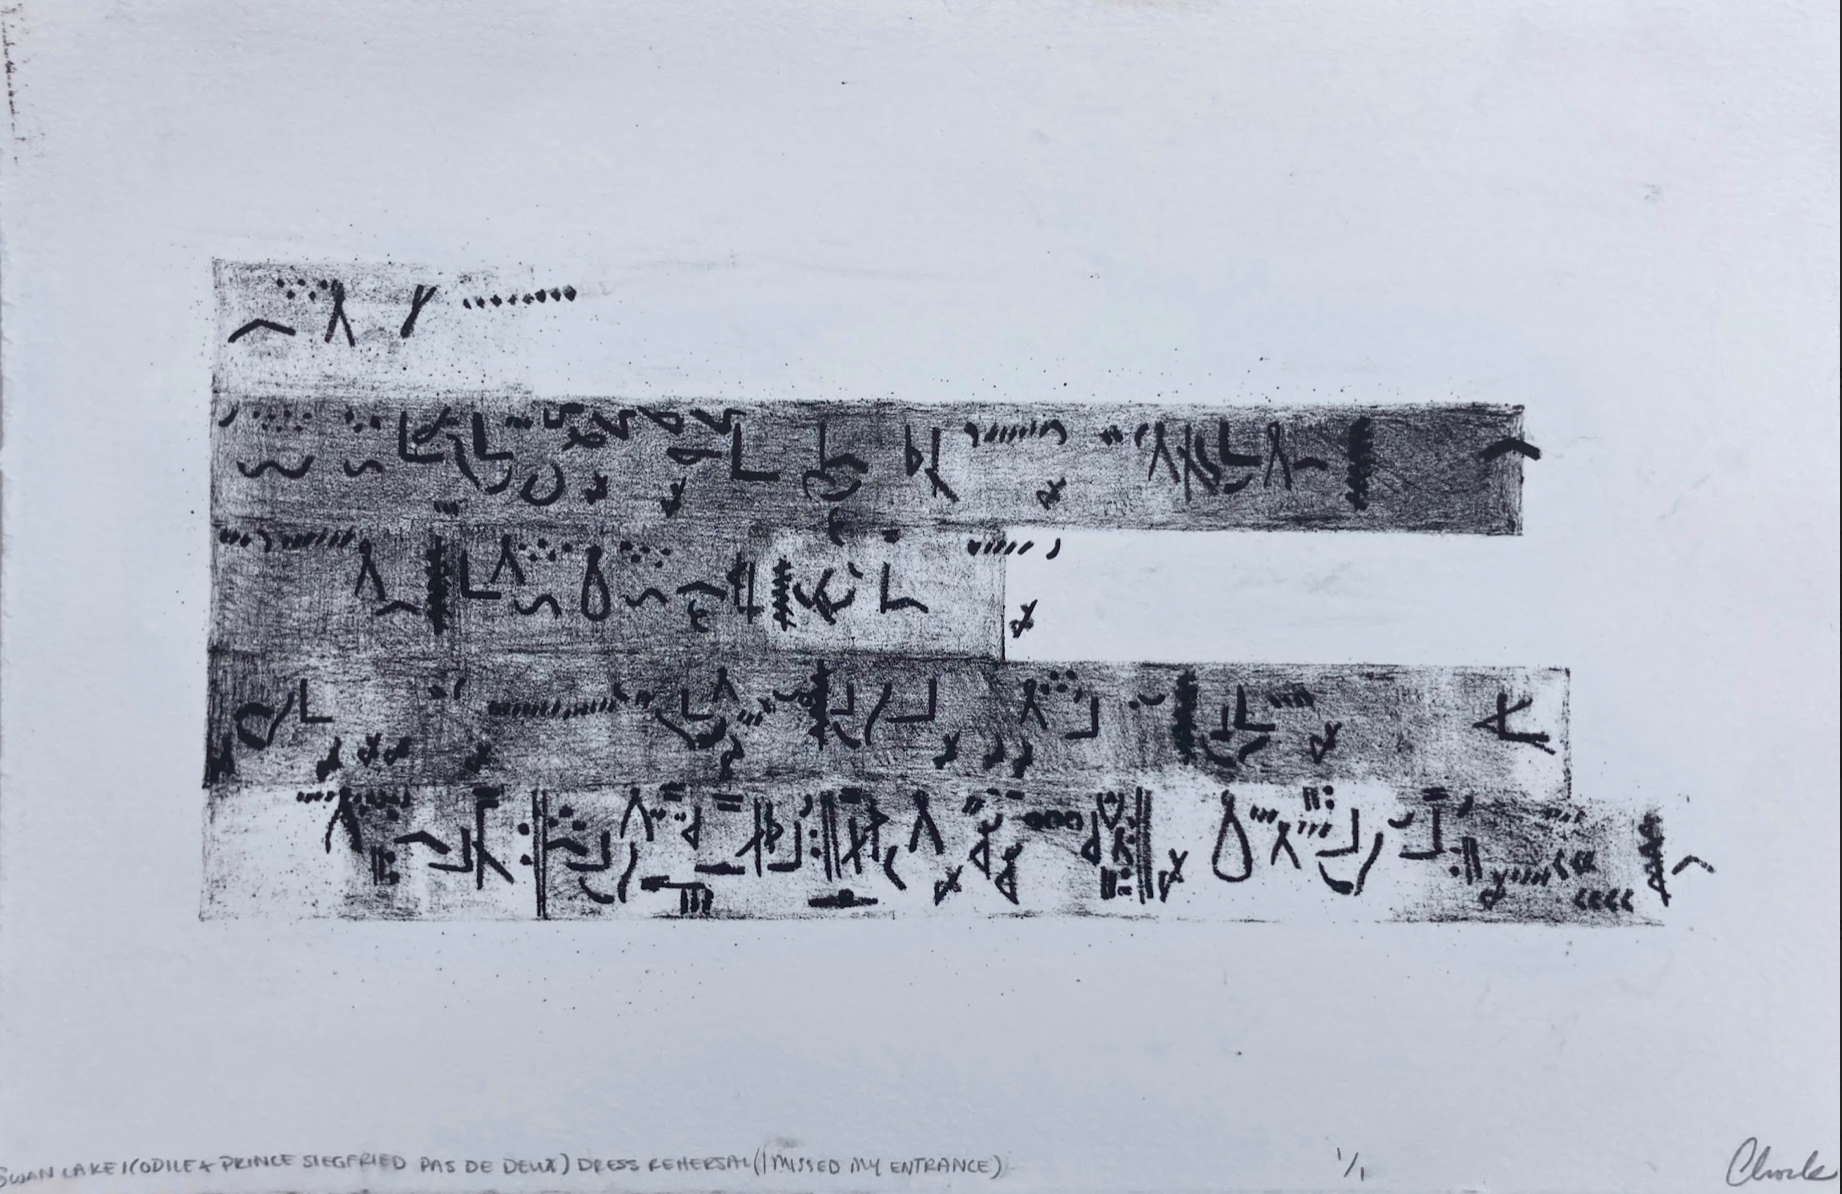 SWAN LAKE I (ODILE & PRINCE SIEGFRIED PAS DE DEUX) DRESS REHERSAL (I MISSED MY ENTRANCE) 1/1